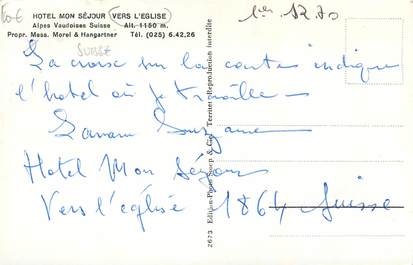 10€
HOTEL MON SÉJOUR VERS L'EGLISE
Alpes Vaudoises Suisse Alt. 1150 m.
Propr. Mess. Morel & Hangartner Tél. (025) 6.42.26
SUISSE
1270
La croix sur la carte indique
l'hotel où je travaille
Suzanne
Hotel Mon Séjour
Vers l'église 1864 Suisse
2673 Edition-Photo & Cie, Territet (Reproduction interdite